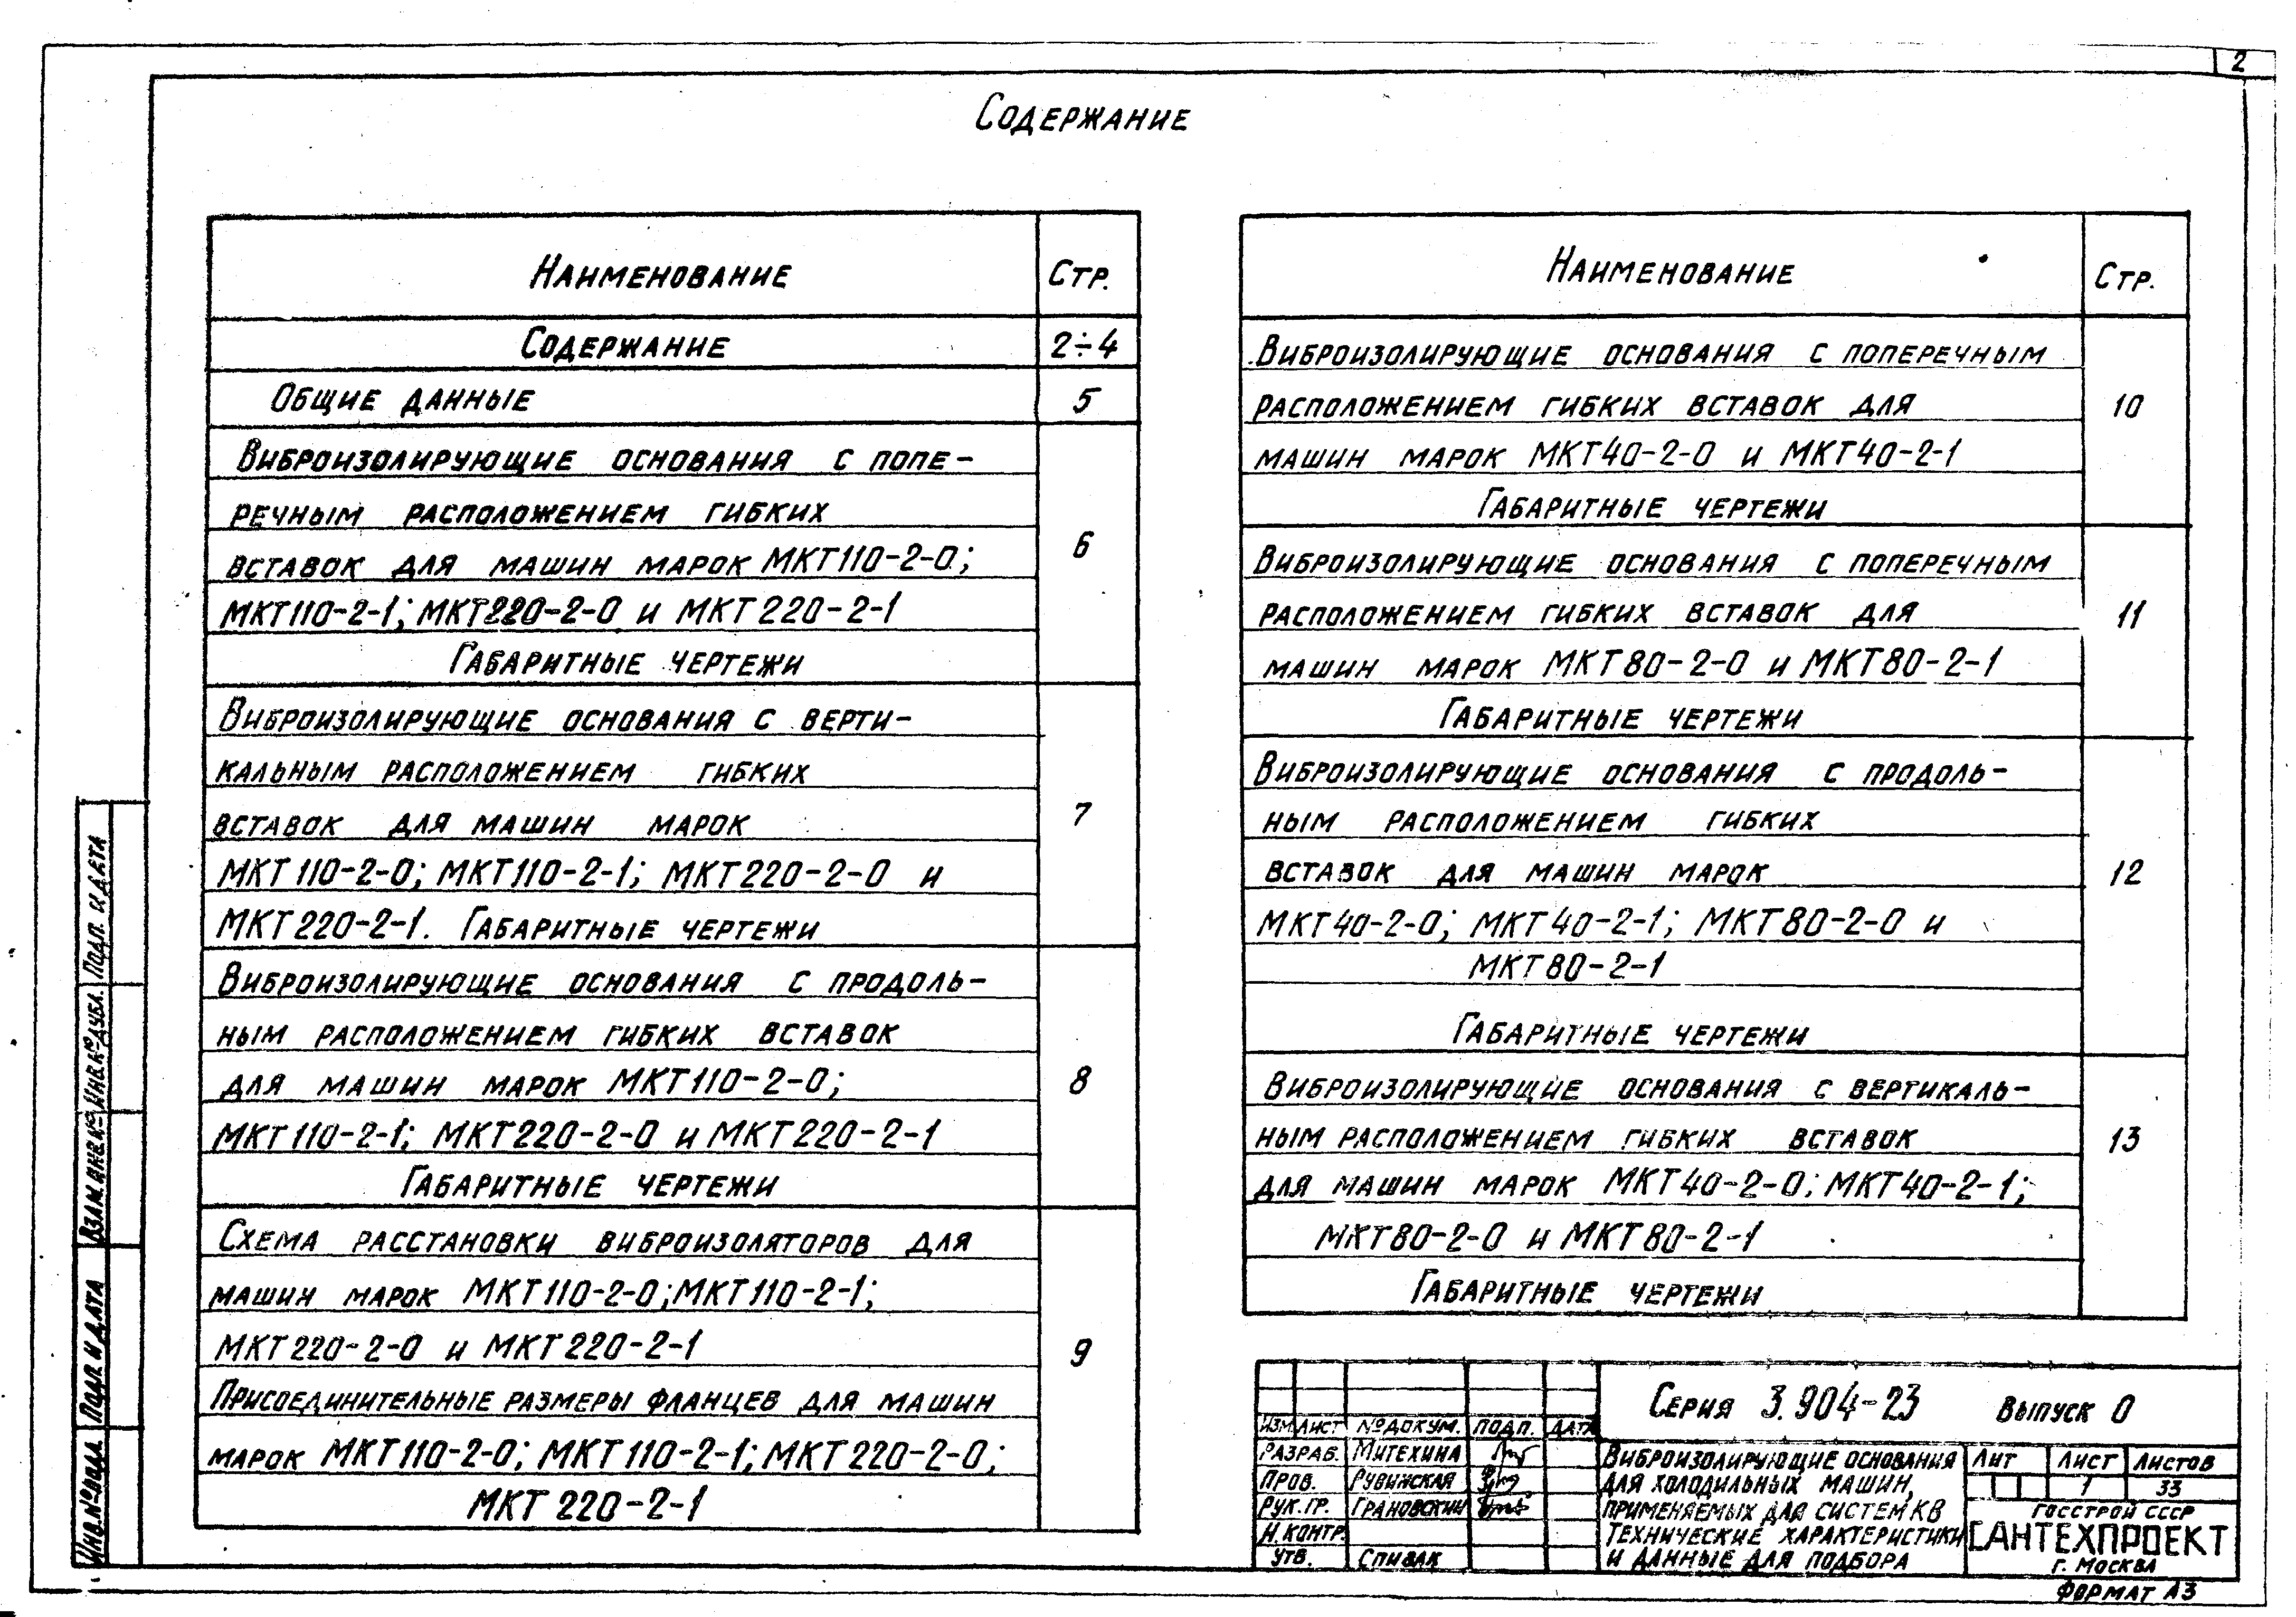 2
Содержание
Наименование Стр.
Содержание 2÷4
Общие данные 5
Виброизолирующие основания с попе-
речным расположением гибких
вставок для машин марок МКТ110-2-0;
МКТ110-2-1; МКТ220-2-0 и МКТ220-2-1
Габаритные чертежи
6
Виброизолирующие основания с верти-
кальным расположением гибких
вставок для машин марок
МКТ110-2-0; МКТ110-2-1; МКТ220-2-0 и
МКТ220-2-1. Габаритные чертежи
7
Виброизолирующие основания с продоль-
ным расположением гибких вставок
для машин марок МКТ110-2-0;
МКТ110-2-1; МКТ220-2-0 и МКТ220-2-1
Габаритные чертежи
8
Схема расстановки виброизоляторов для
машин марок МКТ110-2-0; МКТ110-2-1;
МКТ220-2-0 и МКТ220-2-1
Присоединительные размеры фланцев для машин
марок МКТ110-2-0; МКТ110-2-1; МКТ220-2-0;
МКТ220-2-1
9
Наименование Стр.
Виброизолирующие основания с поперечным
расположением гибких вставок для
машин марок МКТ40-2-0 и МКТ40-2-1
Габаритные чертежи
10
Виброизолирующие основания с поперечным
расположением гибких вставок для
машин марок МКТ80-2-0 и МКТ80-2-1
Габаритные чертежи
11
Виброизолирующие основания с продоль-
ным расположением гибких
вставок для машин марок
МКТ40-2-0; МКТ40-2-1; МКТ80-2-0 и
МКТ80-2-1
Габаритные чертежи
12
Виброизолирующие основания с вертикаль-
ным расположением гибких вставок
для машин марок МКТ40-2-0; МКТ40-2-1;
МКТ80-2-0 и МКТ80-2-1
Габаритные чертежи
13
Инв.№подл. Подп. и дата Взам.инв.№ Инв.№дубл. Подп. и дата
Изм. Лист №докум. Подп. Дата
Разраб. Митехина
Пров. Рувинская
Рук.гр. Грановский
Н.контр.
Утв. Спивак
Серия 3.904-23 Выпуск 0
Виброизолирующие основания
для холодильных машин,
применяемых для систем КВ
Технические характеристики
и данные для подбора
Лит Лист Листов
1 33
Госстрой СССР
САНТЕХПРОЕКТ
г. Москва
Формат А3